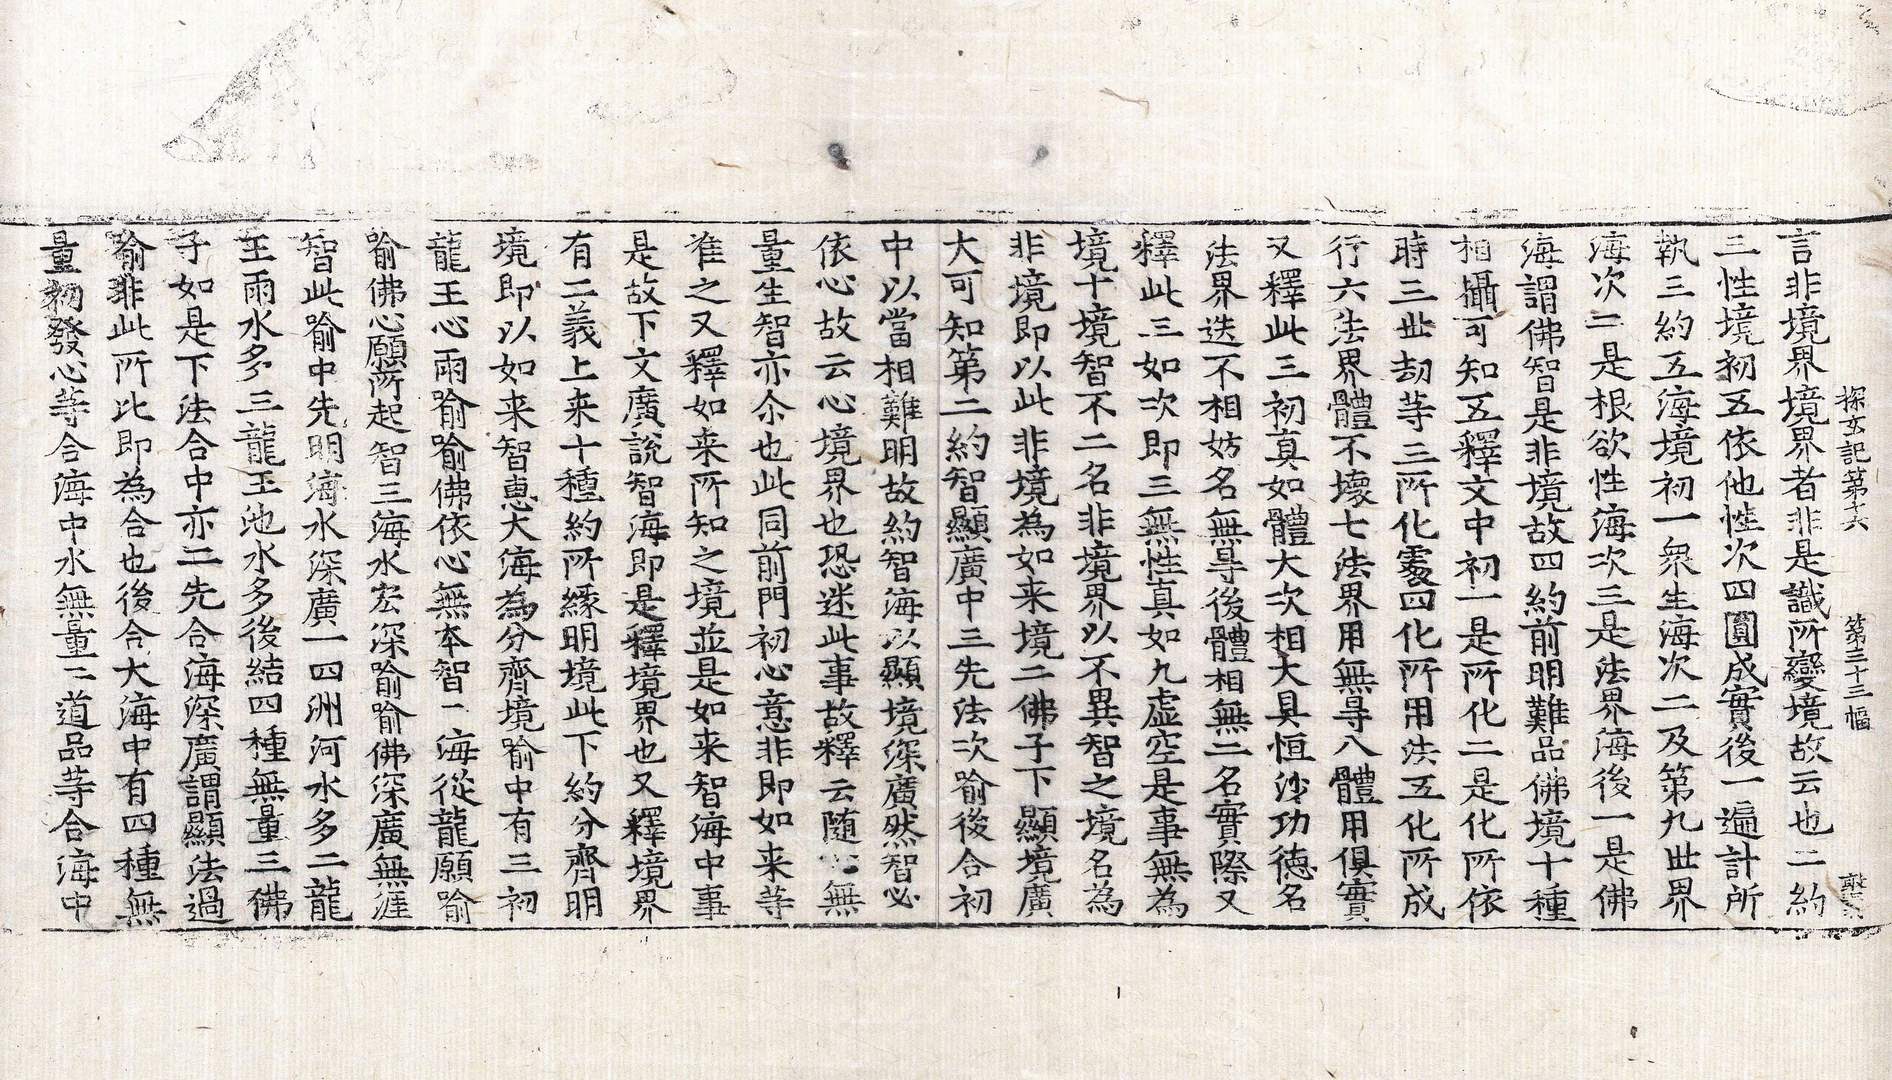 探玄記第十六 第三十三幅
言非境界境界者非是識所變境故云也二約
三性境初五依他性次四圓成實後一遍計所
執三約五海境初一衆生海次二及第九世界
海次二是根欲性海次三是法界海後一是佛
海謂佛智是非境故四約前明難品佛境十種
相攝可知五釋文中初一是所化二是化所依
時三世劫等三所化處四化所用法五化所成
行六法界體不壞七法界用無㝵八體用俱實
又釋此三初真如體大次相大具恒沙功德名
法界迭不相妨名無㝵後體相無二名實際又
釋此三如次即三無性真如九虛空是事無為
境十境智不二名非境界以不異智之境名為
非境即以此非境為如来境二佛子下顯境廣
大可知第二約智顯廣中三先法次喻後合初
中以當相難明故約智海以顯境深廣然智必
依心故云心境界也恐迷此事故釋云随心無
量生智亦尒也此同前門初心意非即如来等
准之又釋如来所知之境並是如来智海中事
是故下文廣說智海即是釋境界也又釋境界
有二義上来十種約所緣明境此下約分齊明
境即以如来智惠大海為分齊境喻中有三初
龍王心雨喻喻佛依心無本智二海從龍願喻
喻佛心願所起智三海水宏深喻喻佛深廣無涯
智此喻中先明海水深廣一四洲河水多二龍
王雨水多三龍王池水多後結四種無量三佛
子如是下法合中亦二先合海深廣謂顯法過
喻非此所比即為合也後合大海中有四種無
量初發心等合海中水無量二道品等合海中